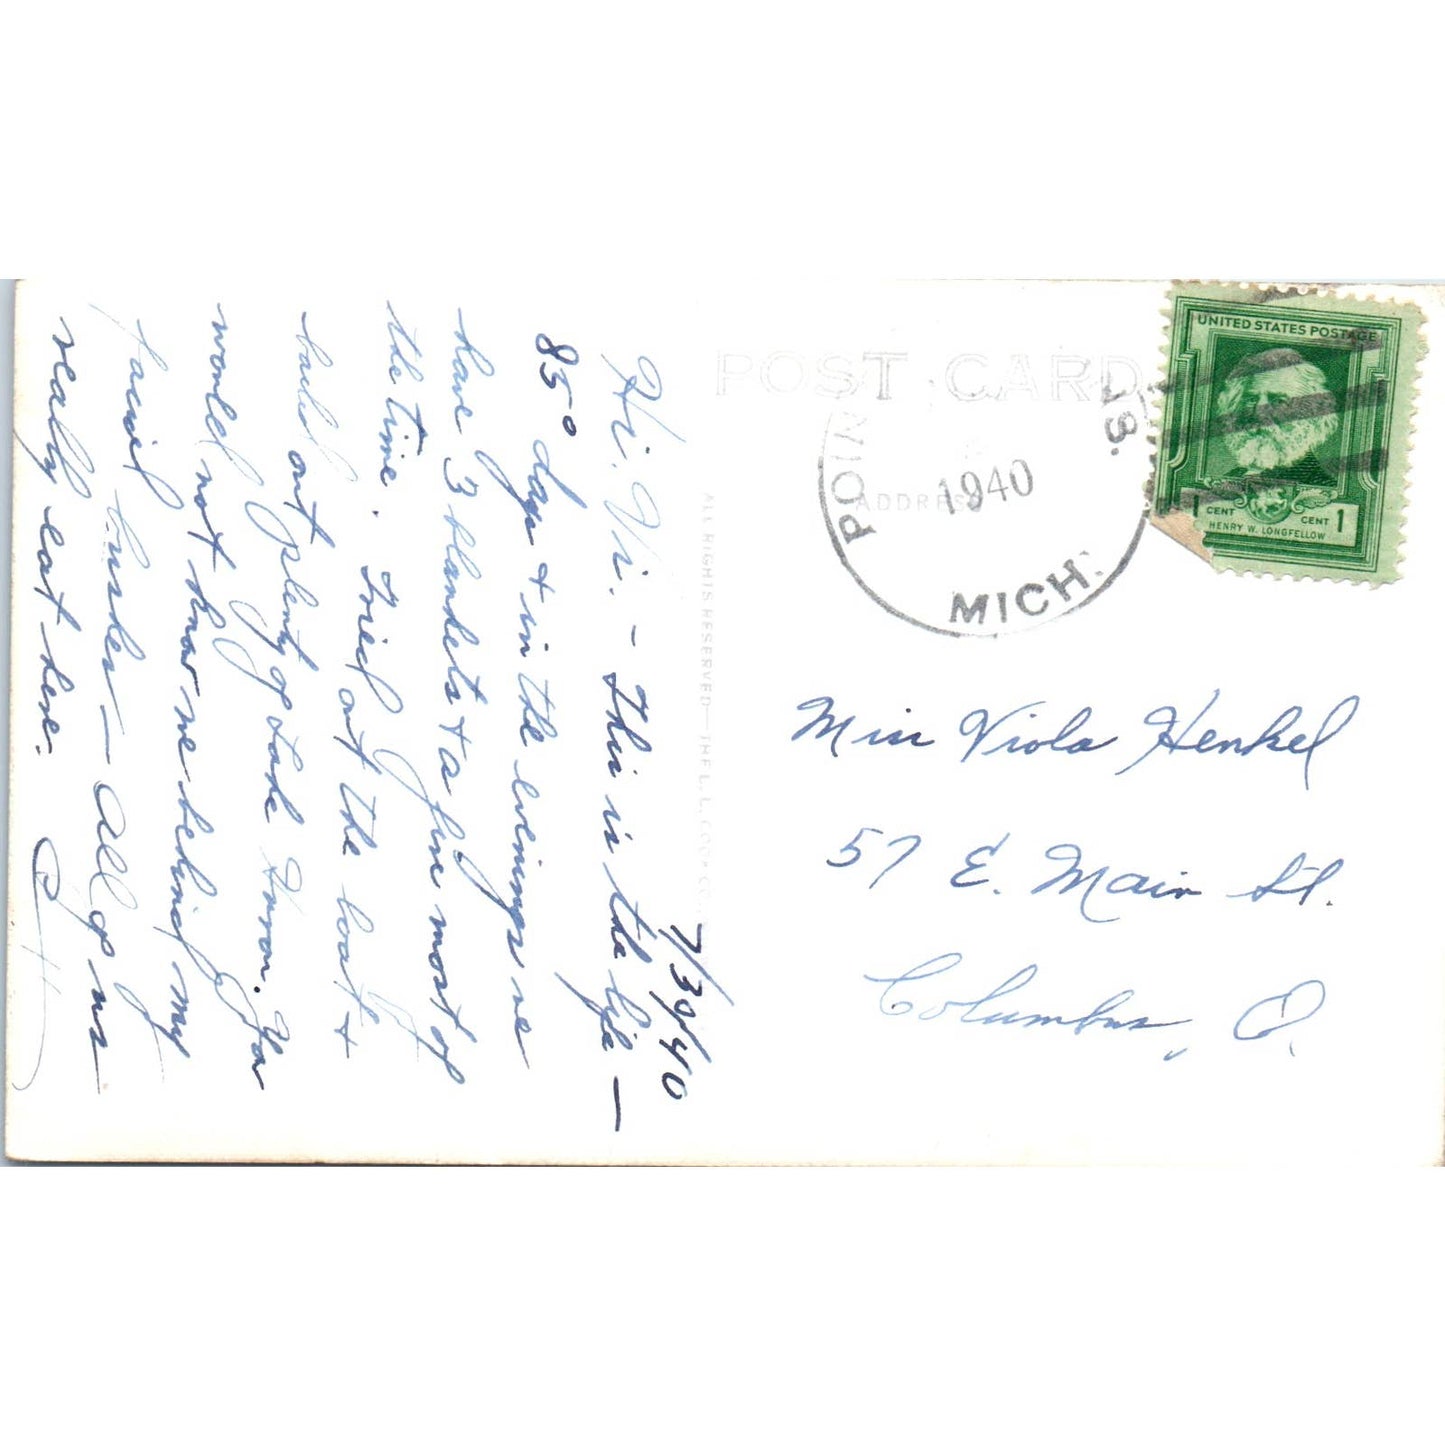 7/30/40
Hi. Vi. - This is the life —
85° day + in the evenings we
have 3 blankets + a fire most of
the time. Tried out the boat +
bailed out plenty of Lake Huron. You
would not know me behind my
facial bushes — All of us
really eat here.
POST CARD
ADDRESS
1940
MICH.
UNITED STATES POSTAGE
1 CENT CENT 1
HENRY W. LONGFELLOW
ALL RIGHTS RESERVED — THE L. L. COOK CO.
Miss Viola Henkel
57 E. Main St.
Columbus, O.